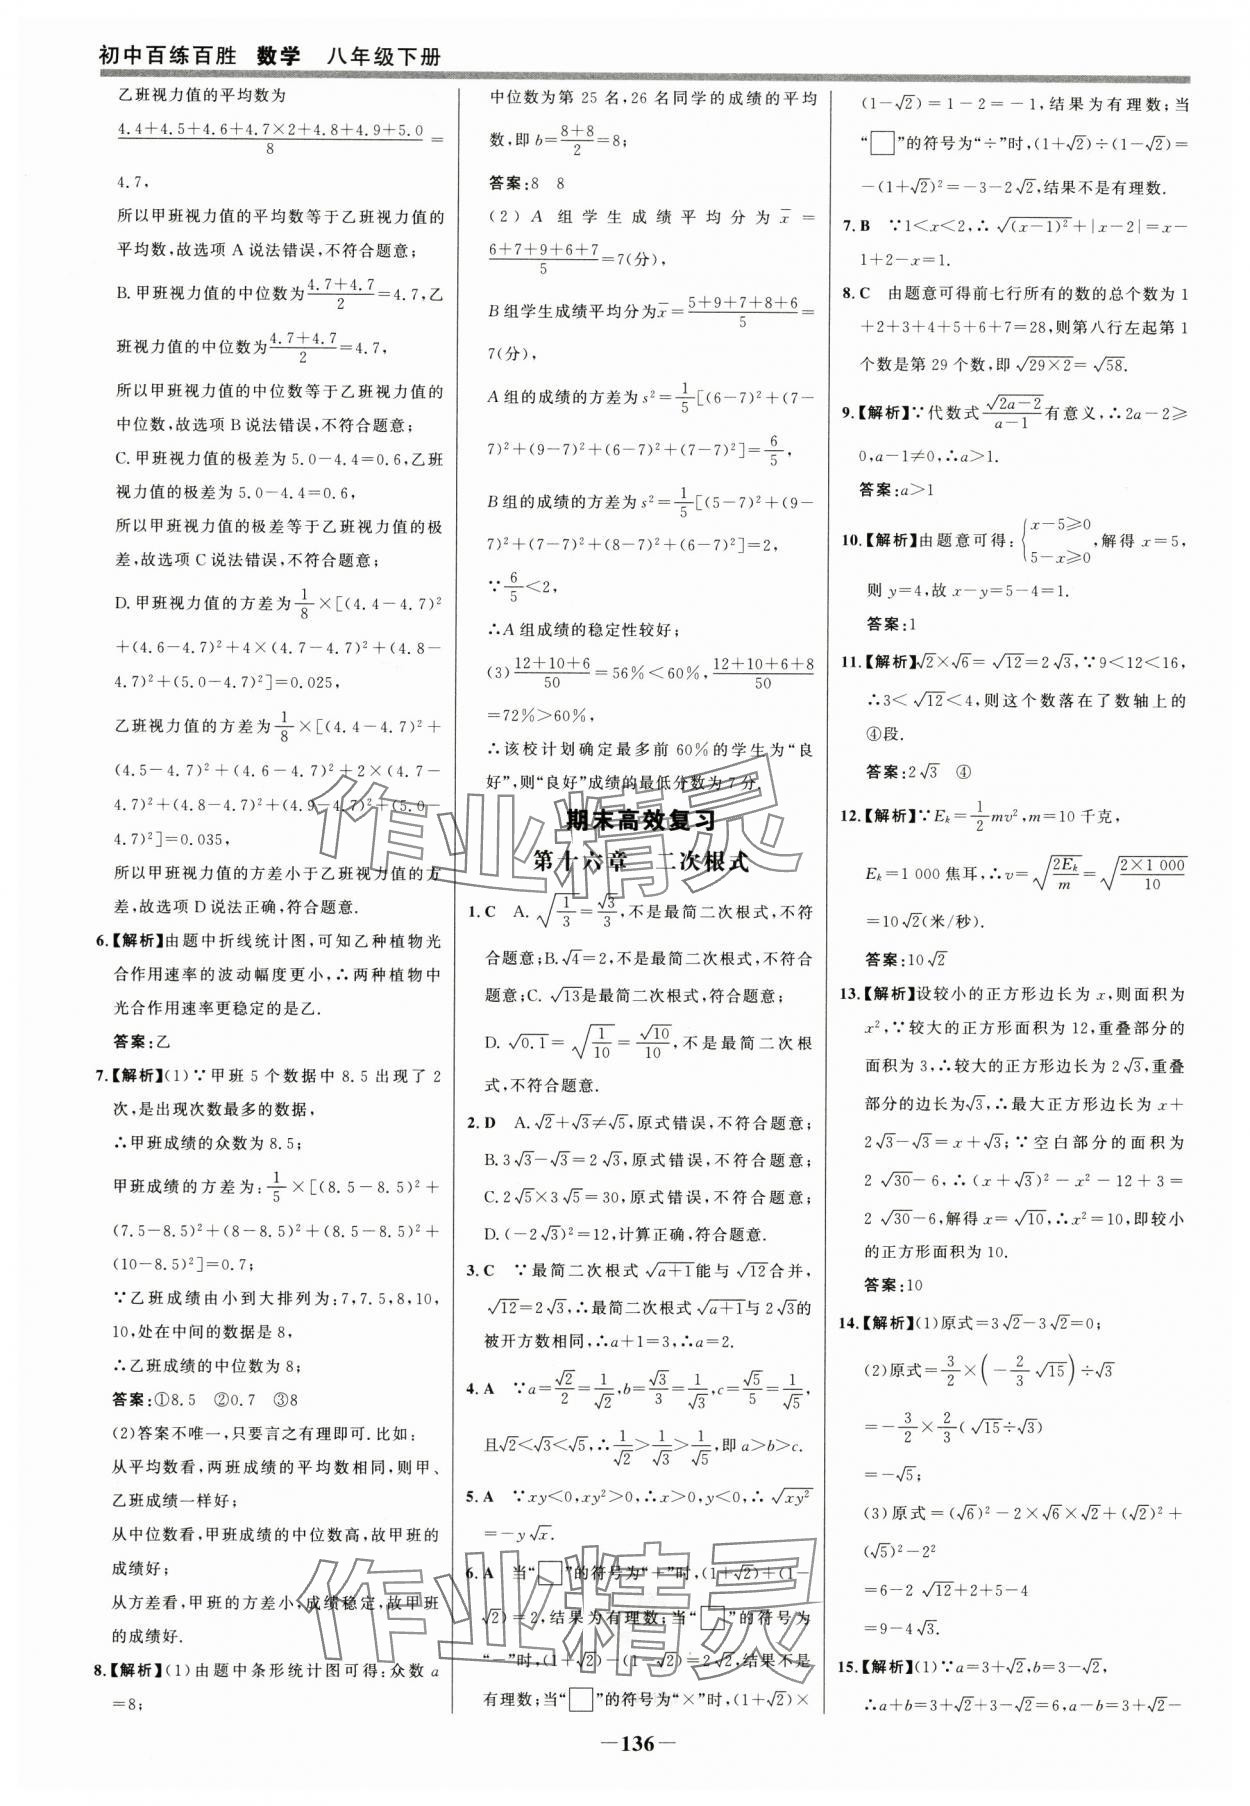 初中百练百胜 数学 八年级下册
乙班视力值的平均数为
(4.4+4.5+4.6+4.7×2+4.8+4.9+5.0)/8=
4.7,
所以甲班视力值的平均数等于乙班视力值的
平均数,故选项A说法错误,不符合题意;
B.甲班视力值的中位数为(4.7+4.7)/2=4.7,乙
班视力值的中位数为(4.7+4.7)/2=4.7,
所以甲班视力值的中位数等于乙班视力值的
中位数,故选项B说法错误,不符合题意;
C.甲班视力值的极差为5.0-4.4=0.6,乙班
视力值的极差为5.0-4.4=0.6,
所以甲班视力值的极差等于乙班视力值的极
差,故选项C说法错误,不符合题意;
D.甲班视力值的方差为1/8×[(4.4-4.7)²
+(4.6-4.7)²+4×(4.7-4.7)²+(4.8-
4.7)²+(5.0-4.7)²]=0.025,
乙班视力值的方差为1/8×[(4.4-4.7)²+
(4.5-4.7)²+(4.6-4.7)²+2×(4.7-
4.7)²+(4.8-4.7)²+(4.9-4.7)²+(5.0-
4.7)²]=0.035,
所以甲班视力值的方差小于乙班视力值的方
差,故选项D说法正确,符合题意.
6.【解析】由题中折线统计图,可知乙种植物光
合作用速率的波动幅度更小,∴两种植物中
光合作用速率更稳定的是乙.
答案:乙
7.【解析】(1)∵甲班5个数据中8.5出现了2
次,是出现次数最多的数据,
∴甲班成绩的众数为8.5;
甲班成绩的方差为:1/5×[(8.5-8.5)²+
(7.5-8.5)²+(8-8.5)²+(8.5-8.5)²+
(10-8.5)²]=0.7;
∵乙班成绩由小到大排列为:7,7.5,8,10,
10,处在中间的数据是8,
∴乙班成绩的中位数为8;
答案:①8.5 ②0.7 ③8
(2)答案不唯一,只要言之有理即可.比如:
从平均数看,两班成绩的平均数相同,则甲、
乙班成绩一样好;
从中位数看,甲班成绩的中位数高,故甲班的
成绩好;
从方差看,甲班的方差小,成绩稳定,故甲班
的成绩好.
8.【解析】(1)由题中条形统计图可得:众数a
=8;
中位数为第25名,26名同学的成绩的平均
数,即b=(8+8)/2=8;
答案:8 8
(2)A组学生成绩平均分为x̄=
(6+7+9+6+7)/5=7(分),
B组学生成绩平均分为x̄=(5+9+7+8+6)/5=
7(分),
A组的成绩的方差为s²=1/5[(6-7)²+(7-
7)²+(9-7)²+(6-7)²+(7-7)²]=6/5,
B组的成绩的方差为s²=1/5[(5-7)²+(9-
7)²+(7-7)²+(8-7)²+(6-7)²]=2,
∵6/5<2,
∴A组成绩的稳定性较好;
(3)(12+10+6)/50=56%<60%,(12+10+6+8)/50
=72%>60%,
∴该校计划确定最多前60%的学生为“良
好”,则“良好”成绩的最低分数为7分.
期末高效复习
第十六章 二次根式
1.C A.√(1/3)=√3/3,不是最简二次根式,不符
合题意;B.√4=2,不是最简二次根式,不符合
题意;C.√13是最简二次根式,符合题意;
D.√0.1=√(1/10)=√10/10,不是最简二次根
式,不符合题意.
2.D A.√2+√3≠√5,原式错误,不符合题意;
B.3√3-√3=2√3,原式错误,不符合题意;
C.2√5×3√5=30,原式错误,不符合题意;
D.(-2√3)²=12,计算正确,符合题意.
3.C ∵最简二次根式√(a+1)能与√12合并,
√12=2√3,∴最简二次根式√(a+1)与2√3的
被开方数相同,∴a+1=3,∴a=2.
4.A ∵a=√2/2=1/√2,b=√3/3=1/√3,c=√5/5=1/√5,
且√2<√3<√5,∴1/√2>1/√3>1/√5,即a>b>c.
5.A ∵xy<0,xy²>0,∴x>0,y<0,∴√(xy²)
=-y√x.
6.A 当“□”的符号为“+”时,(1+√2)+(1-
√2)=2,结果为有理数;当“□”的符号为
“-”时,(1+√2)-(1-√2)=2√2,结果不是
有理数;当“□”的符号为“×”时,(1+√2)×
(1-√2)=1-2=-1,结果为有理数;当
“□”的符号为“÷”时,(1+√2)÷(1-√2)=
-(1+√2)²=-3-2√2,结果不是有理数.
7.B ∵1<x<2,∴√((x-1)²)+|x-2|=x-
1+2-x=1.
8.C 由题意可得前七行所有的数的总个数为1
+2+3+4+5+6+7=28,则第八行左起第1
个数是第29个数,即√(29×2)=√58.
9.【解析】∵代数式√(2a-2)/(a-1)有意义,∴2a-2≥
0,a-1≠0,∴a>1.
答案:a>1
10.【解析】由题意可得:{x-5≥0 5-x≥0,解得x=5,
则y=4,故x-y=5-4=1.
答案:1
11.【解析】√2×√6=√12=2√3,∵9<12<16,
∴3<√12<4,则这个数落在了数轴上的
④段.
答案:2√3 ④
12.【解析】∵Eₖ=1/2mv²,m=10千克,
Eₖ=1 000焦耳,∴v=√(2Eₖ/m)=√(2×1 000/10)
=10√2(米/秒).
答案:10√2
13.【解析】设较小的正方形边长为x,则面积为
x²,∵较大的正方形面积为12,重叠部分的
面积为3,∴较大的正方形边长为2√3,重叠
部分的边长为√3,∴最大正方形边长为x+
2√3-√3=x+√3;∵空白部分的面积为
2√30-6,∴(x+√3)²-x²-12+3=
2√30-6,解得x=√10,∴x²=10,即较小
的正方形面积为10.
答案:10
14.【解析】(1)原式=3√2-3√2=0;
(2)原式=3/2×(-2/3√15)÷√3
=-3/2×2/3(√15÷√3)
=-√5;
(3)原式=(√6)²-2×√6×√2+(√2)²+
(√5)²-2²
=6-2√12+2+5-4
=9-4√3.
15.【解析】(1)∵a=3+√2,b=3-√2,
∴a+b=3+√2+3-√2=6,a-b=3+√2-
作业精灵
作业精灵
—136—